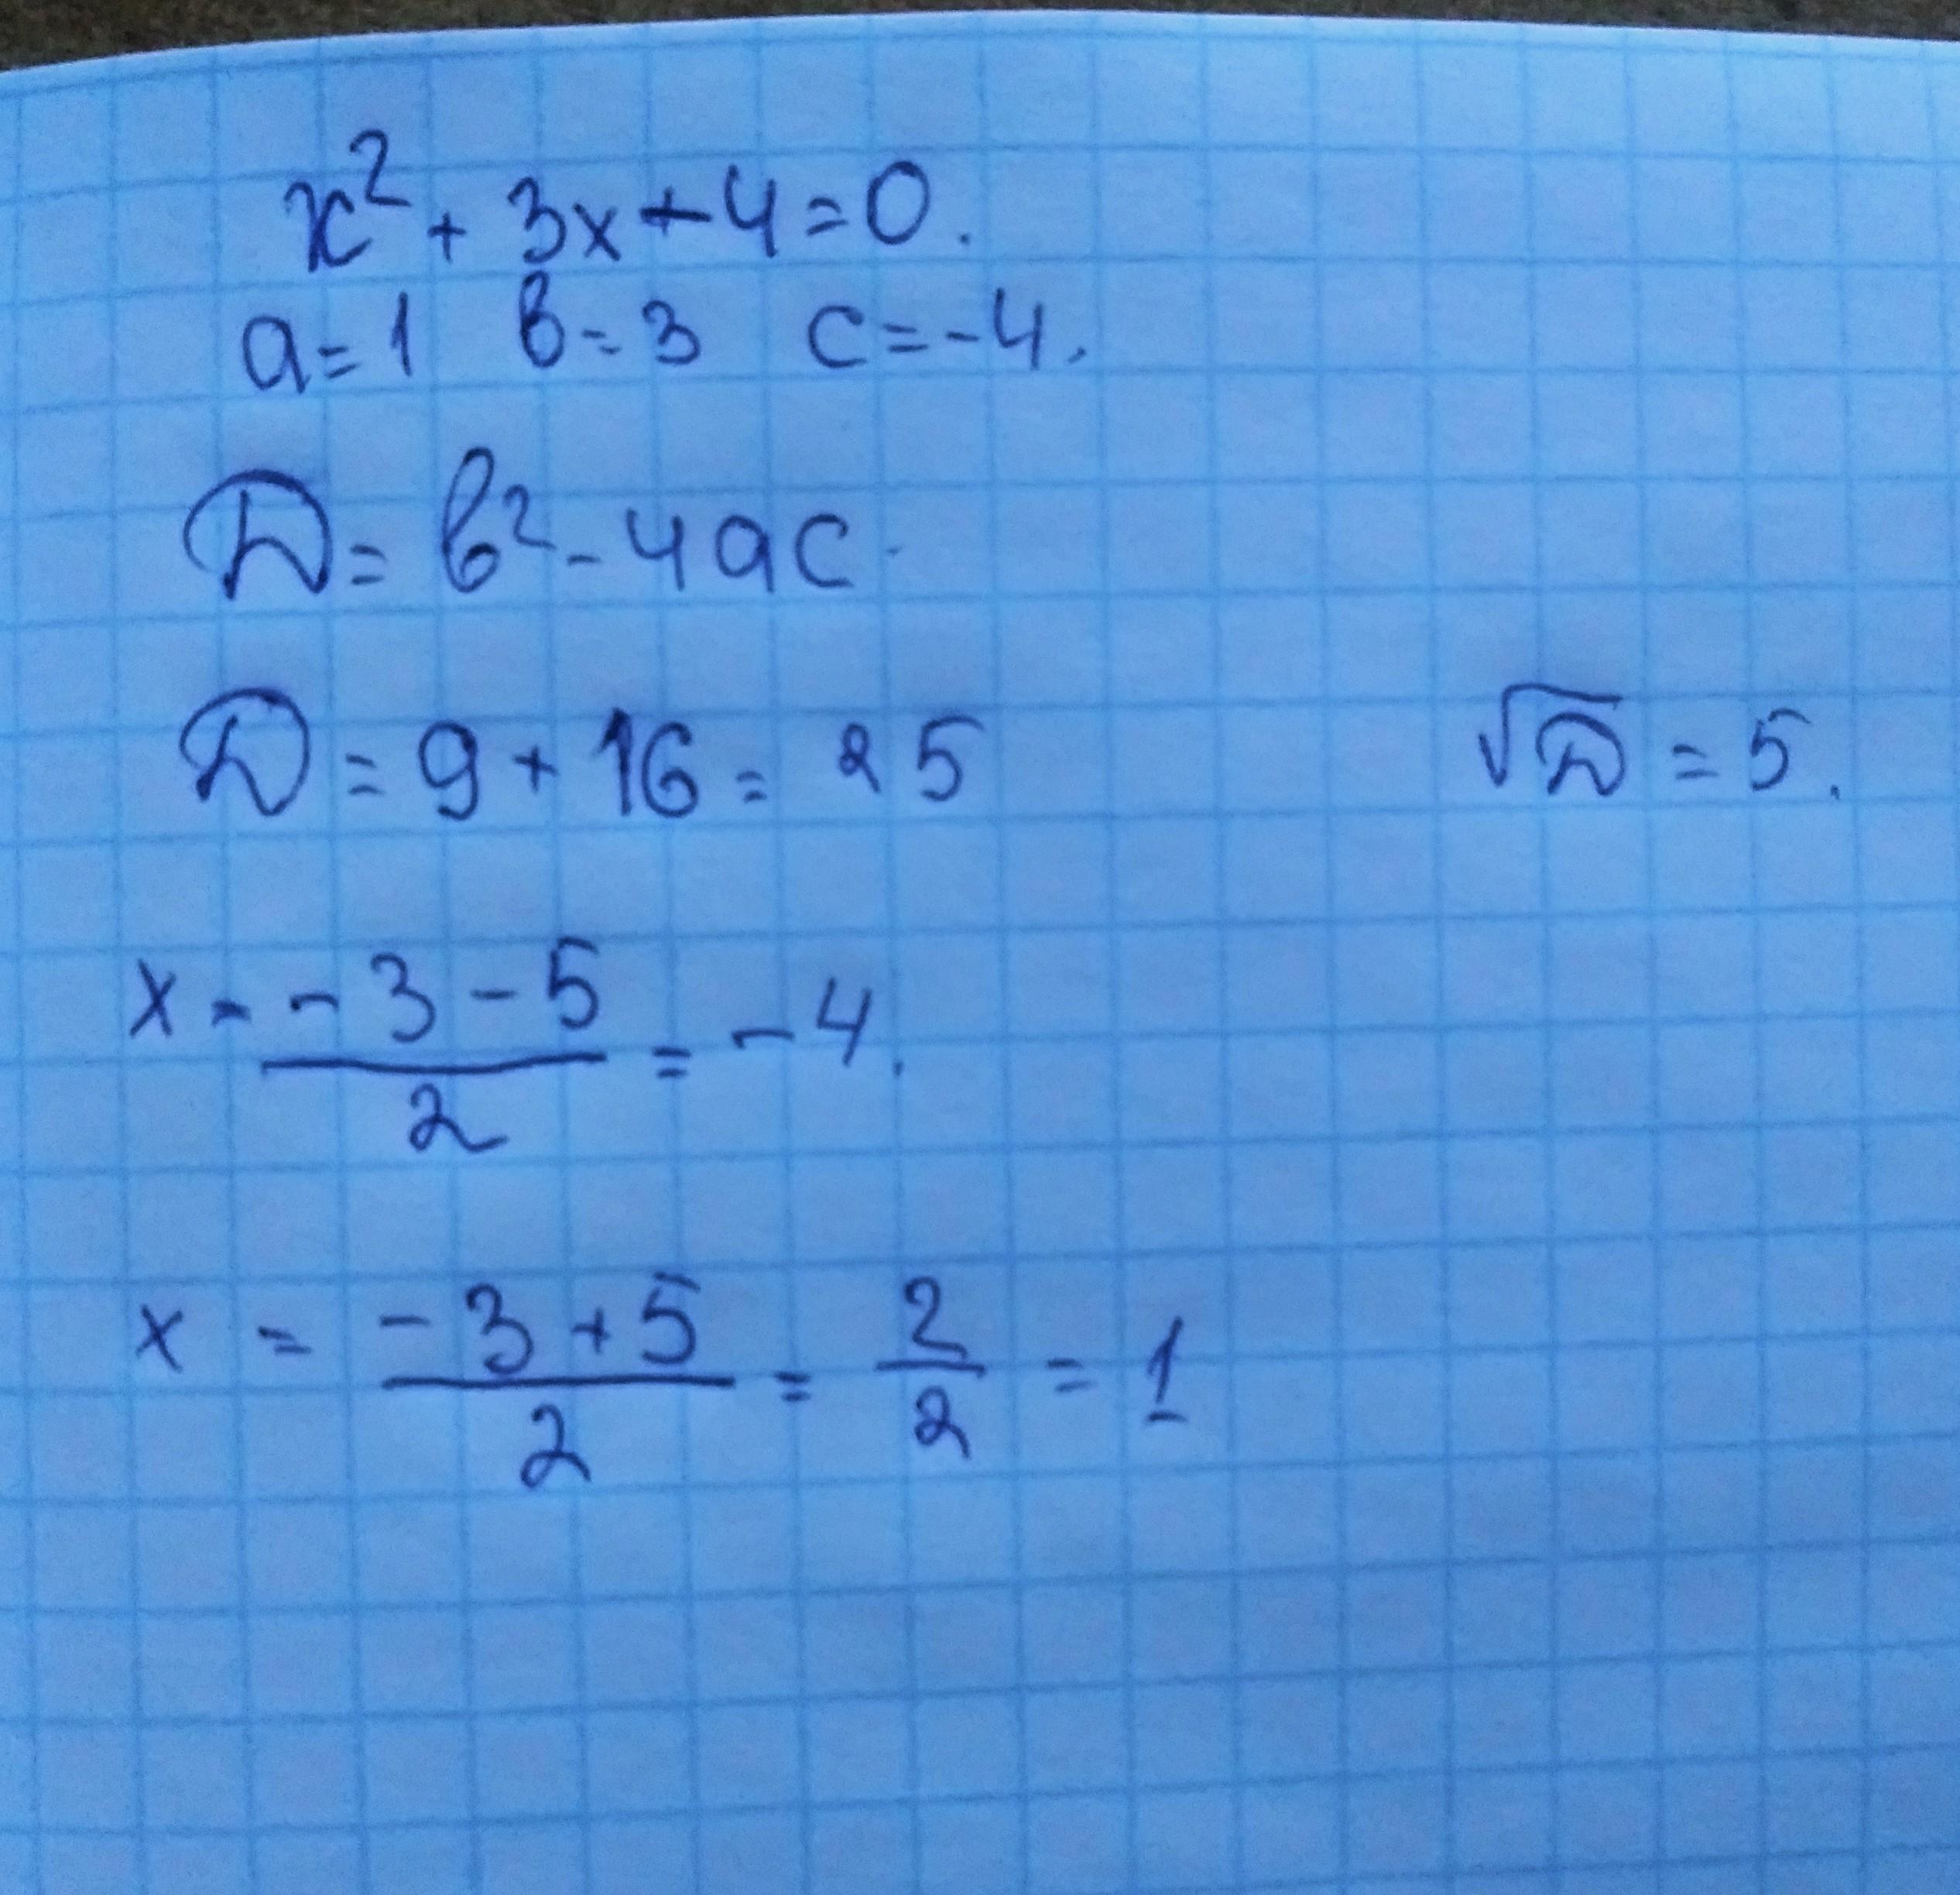 x² + 3x + 4 = 0.
a = 1 в = 3 c = -4.
D = в² - 4ac
D = 9 + 16 = 25 √D = 5.
x = (-3 - 5)/2 = -4.
x = (-3 + 5)/2 = 2/2 = 1